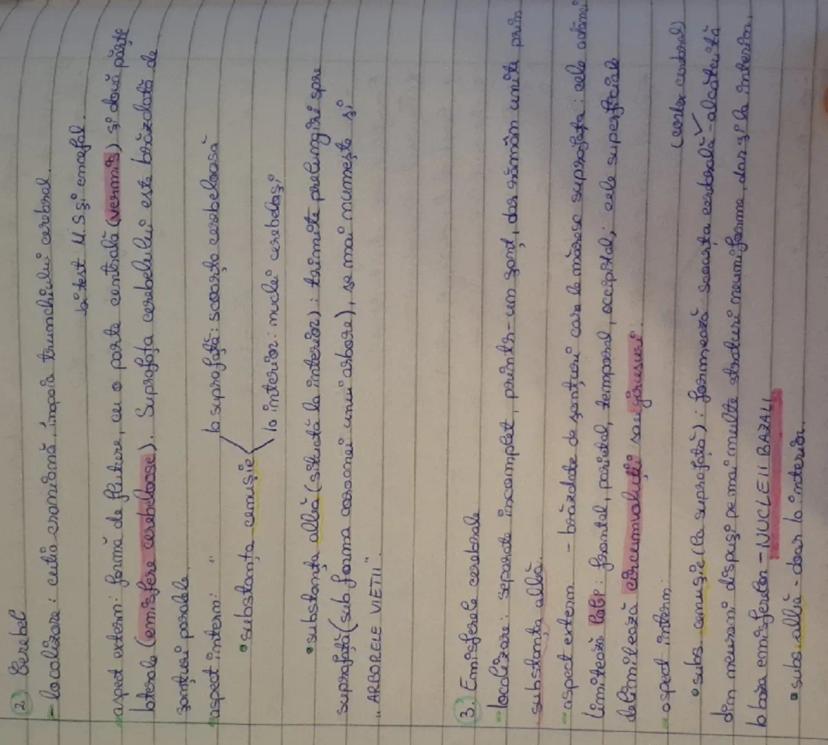 2. Cerebel
- localizare: cutia craniană, înapoia trunchiului cerebral.
bitest M.S și encefal.
- aspect extern: formă de fluture, cu o parte centrală (vermis) și două părți
laterale (emisfere cerebeloase). Suprafața cerebelului este brăzdată de
șanțuri paralele.
- aspect intern: "
la suprafață: scoarța cerebeloasă
• substanța cenușie
la interior: nuclei cerebeloși
• substanța albă (situată la interior): trimite prelungiri spre
suprafață (sub forma coroanei unui arbore), se mai numește și
"ARBORELE VIEȚII".
3. Emisferele cerebrale
- localizare: separate incomplet, printr-un șanț, dar rămân unite prin
substanță albă.
- aspect extern - brăzdate de șanțuri care le măresc suprafața: cele adânci
limitează lobi: frontal, parietal, temporal, occipital; cele superficiale
delimitează circumvoluții sau girusuri.
- aspect intern:
(cortex cerebral)
• subs. cenușie (la suprafață): formează scoarța cerebrală - alcătuită
din neuroni dispuși pe mai multe straturi neuniforme, dar și la interior,
la baza emisferelor - NUCLEII BAZALI
• subs. albă - doar la interior.